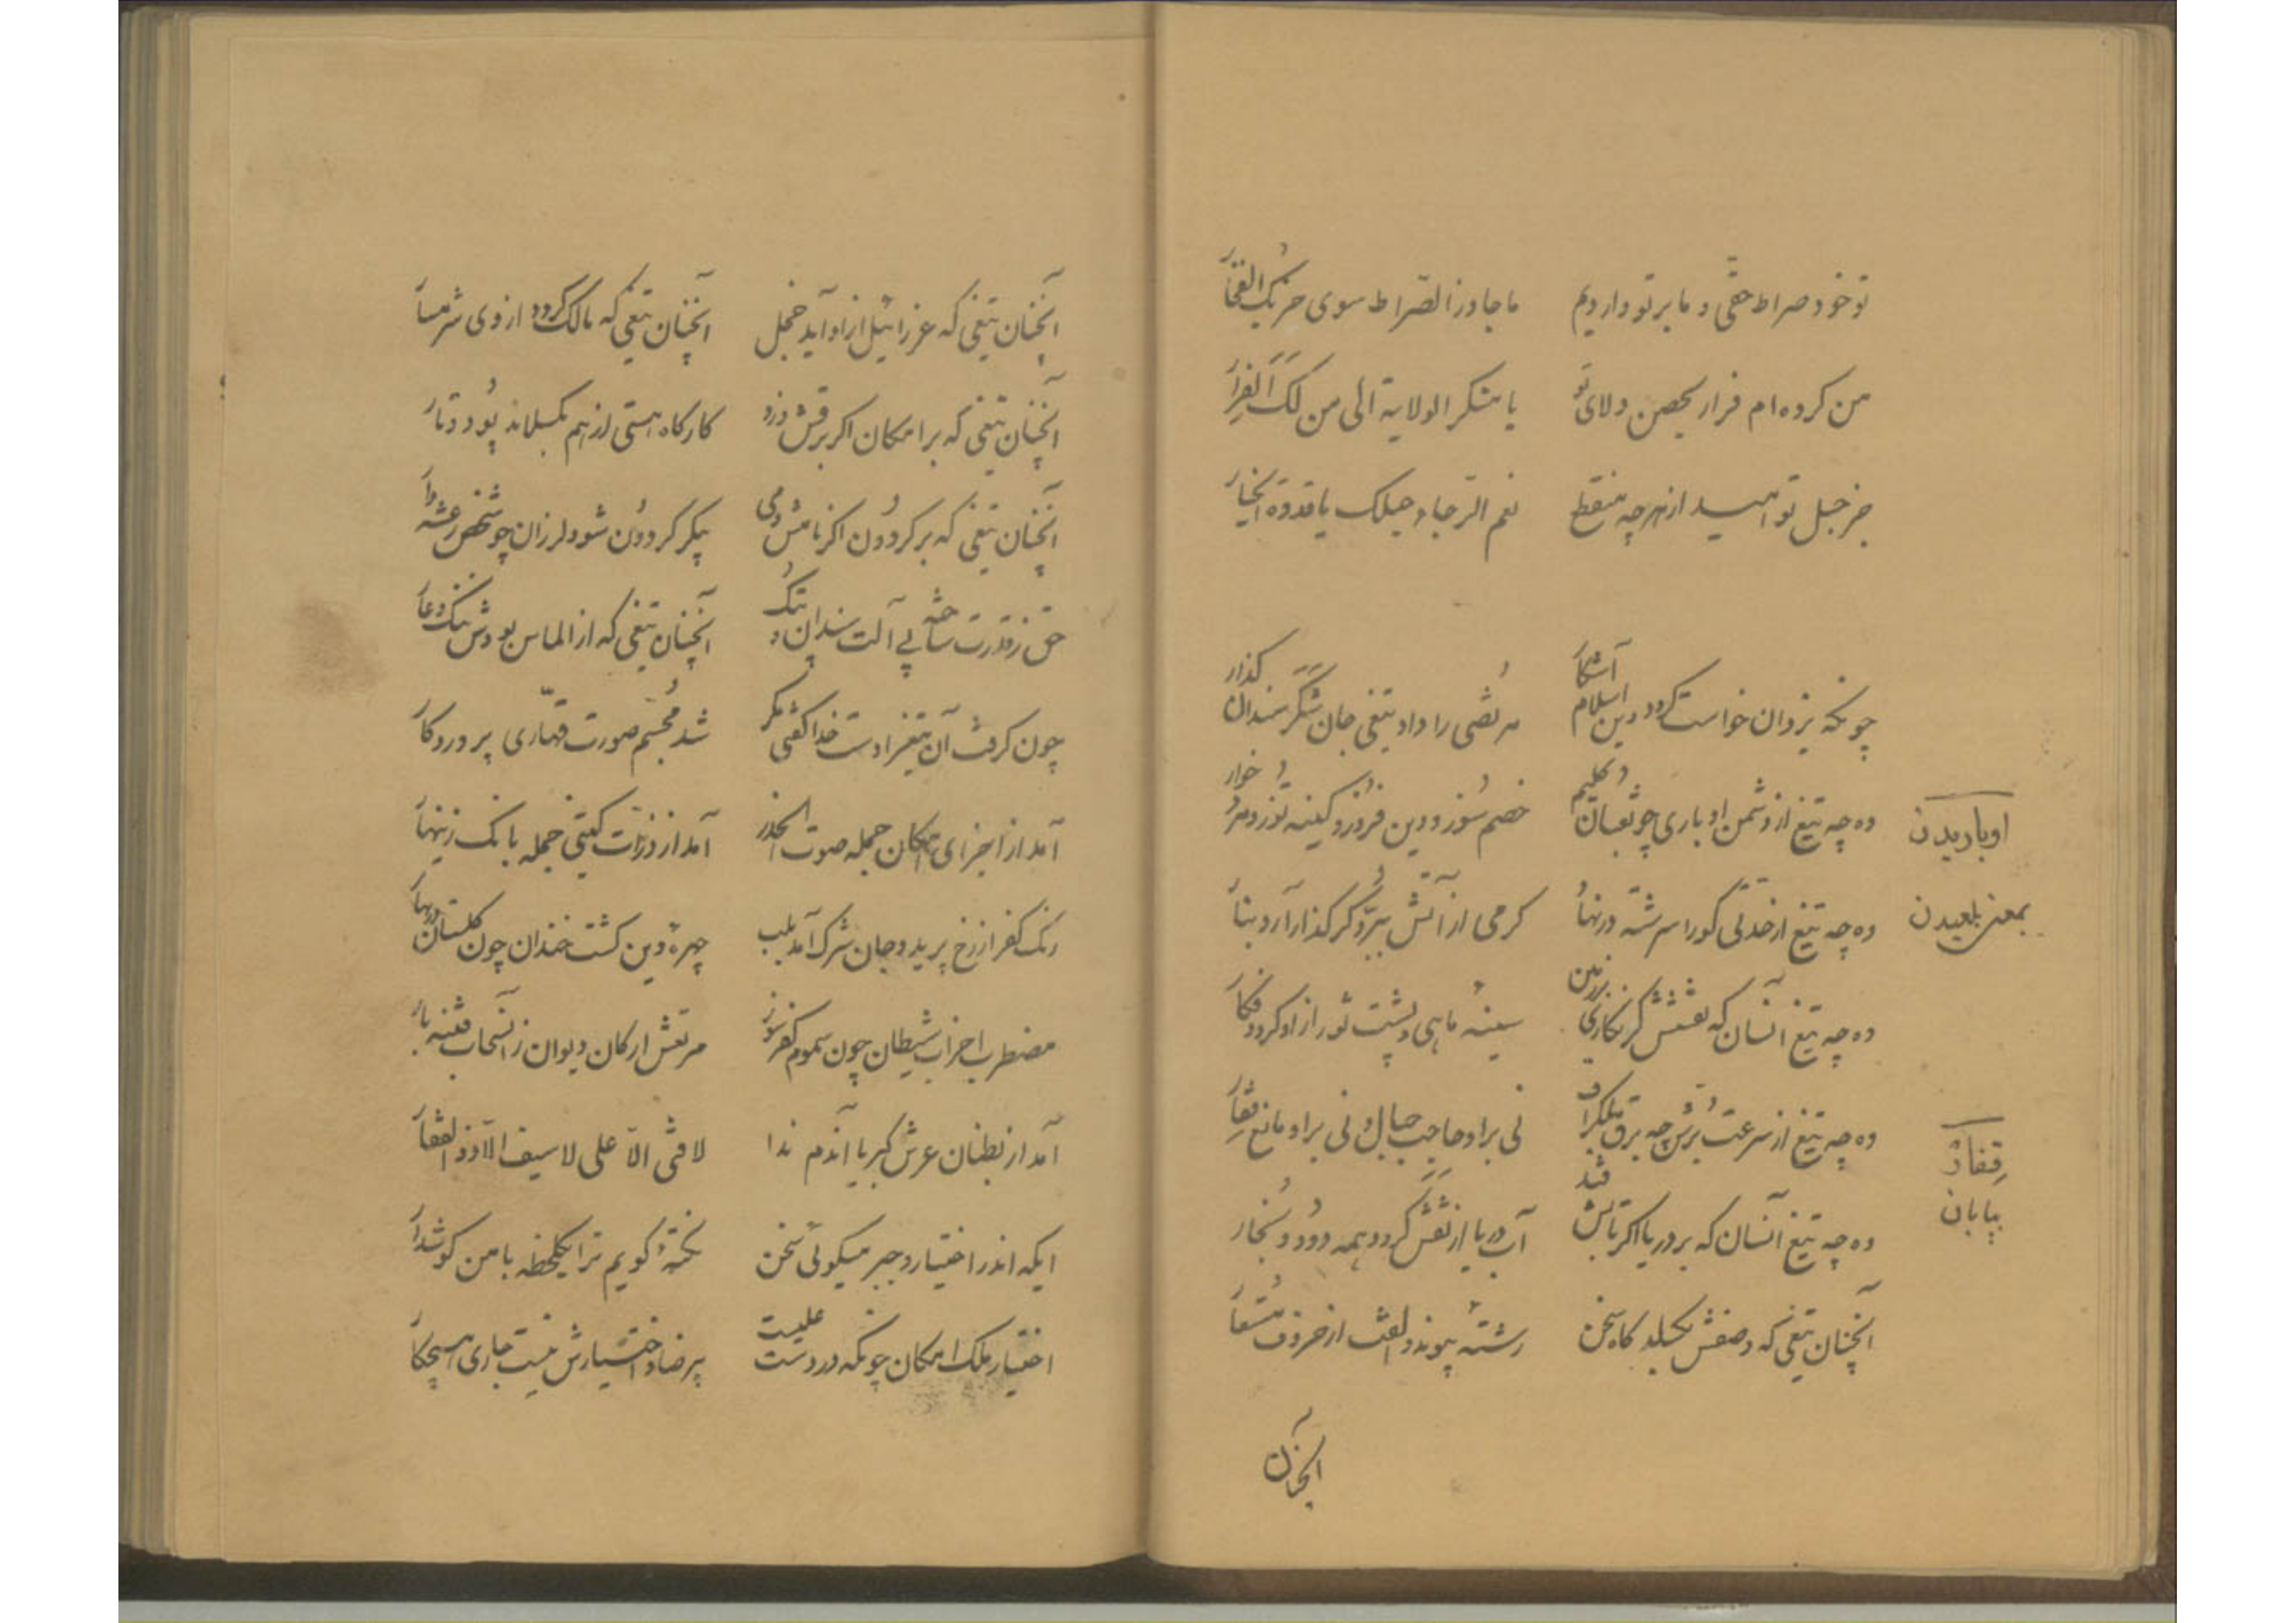 تو خود صراط حقی و ما بر تو واردیم    ما جاوز الصّراط سوی حزبک الفخار
من کرده‌ام فرار بحصن ولای تو    یا منکر الولایة الی من لک الفرار
جز حبل تو امید از هرچه منقطع    نعم الرجاء حبلک یا قدوة الخیار
چونکه یزدان خواست گردد دین اسلام آشکار    مرتضی را داد تیغی جان شکر سندان گذار
وه چه تیغ از دشمن اوباری چو ثعبان کلیم    خصم سوز و دین فروز و کینه توز و مرد خوار
اوباریدن
وه چه تیغ از حدتی کو را سرشته در نهاد    گرمی از آتش ببرد گر گذار آرد بنار
بمعنی بلعیدن
وه چه تیغ آنسان که نقشش گر نگاری بر زمین    سینه ماهی و پشت ثور از او گردد فکار
وه چه تیغ از سرعت برش چه برق    نی بر او حاجب جبال و نی بر او مانع قفار
قفار
بیابان
وه چه تیغ آنسان که بر دریا اگر تابش فتد    آب دریا از تفش گردد همه دود و بخار
آنچنان تیغی که وصفش بگسلد گاه سخن    رشته پیوند و الفت از حروف مستعار
آنچنان
آنچنان تیغی که عزرائیل از او آید خجل    آنچنان تیغی که مالک گردد از وی شرمسار
آنچنان تیغی که بر امکان اگر برقش وزد    کارگاه هستی از هم بگسلاند پود و تار
آنچنان تیغی که بر گردون اگر نامش دمی    پیکر گردون شود لرزان چو شخص رعشه دار
حق ز قدرت ساخته بی آلت سندان و پتک    آنچنان تیغی که از الماس بودش ننگ و عار
چون گرفت آن تیغ را دست خدا گفتی مگر    شد مجسم صورت قهّاری پروردگار
آمد از اجزای امکان جمله صوت الحذر    آمد از ذرّات گیتی جمله بانک زینهار
رنک کفر از رخ پرید و جان شرک آمد بلب    چهرهٔ دین گشت خندان چون گلستان در بهار
مضطرب احزاب شیطان چون سموم کفر سوز    مرتعش ارکان دیوان ز آن سحاب فتنه بار
آمد از بطنان عرش کبریا آندم ندا    لا فتی الّا علی لا سیف الّا ذو الفقار
ایکه اندر اختیار و جبر میگوئی سخن    نکتهٔ گویم ترا یکلحظه با من گوشدار
اختیار ملک امکان چونکه در دست علیست    بی رضا و اختیارش نیست جاری هیچ کار